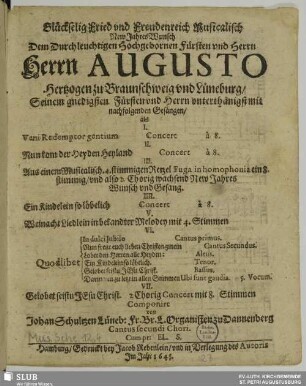 Glückselig Fried und Freudenreich Musicalisch
New Jahrs Wunsch
Dem Durchleuchtigen Hochgebornen Fürsten und Herrn
Herrn AUGUSTO
Hertzogen zu Braunschweig vnd Lüneburg/
Seinem gnedigsten Fürsten vnd Herrn vnterthänigst mit
nachfolgenden Gesängen/
als
I.
Veni Redemptor gentium Concert à 8.
II.
Nun kom der Heyden Heyland Concert à 8.
III.
Aus einem Musicalisch. 4. stimmigen Fuga in homophonia ein 8.
stimmig/ vnd also 2. Chörig wachsend New Jahrs
Wunsch vnd Gesang.
IIII.
Ein Kindelein so löbelich Concert à 8.
V.
Weinacht Liedlein in bekandter Melodey mit 4. Stimmen
VI.
Quodlibet
In dulci Jubilo Cantus primus.
Nun frewt euch lieben Christen gmein Cantus Secundus.
Lobt Gott ihr Christen alle Altus.
Ein Kindelein so löbelich. Tenor.
Gelobet seistu JEsu Christ. Bassus.
5. Vocum.
VII.
Gelobet seistu JEsu Christ. 2 Chorig Concert mit 8. Stimmen
Componirt
von
Johan Schultzen Lüneb: Fr: Br: L. Organisten zu Dannenberg
Cantus secundi Chori.
Cum per: EL. S.
Hamburg/ Gedruckt bey Jacob Rebenlein/ vnd in Verlegung des Autoris
Im Jahr 1645.
SLUB